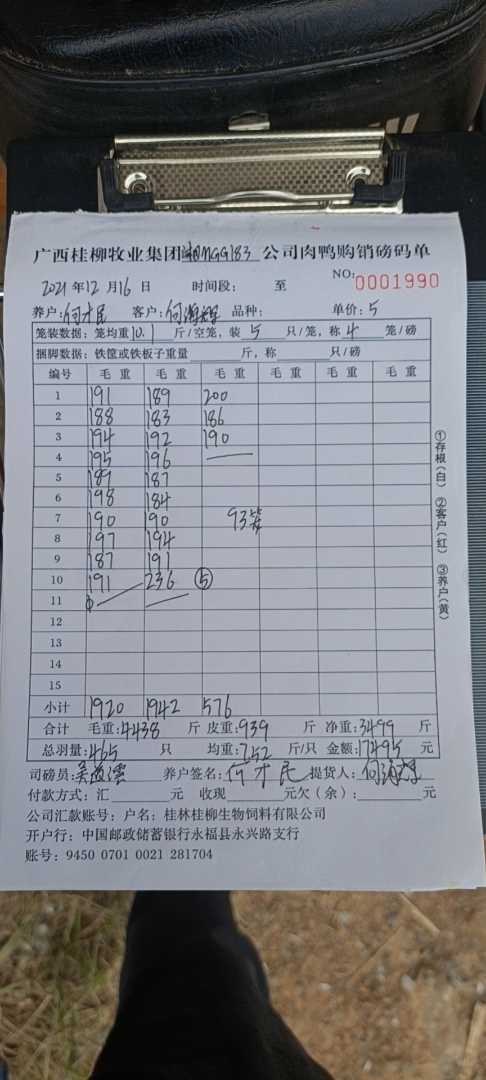 广西桂柳牧业集团湘NGG183公司肉鸭购销磅码单
2021年12月16日 时间段: 至 NO:0001990
养户:何才民 客户: 品种: 单价:5
笼装数据:笼均重10.1斤/空笼,装5只/笼,称4笼/磅
捆脚数据:铁筐或铁板子重量 斤,称 只/磅
编号 毛重 毛重 毛重 毛重 毛重 毛重
1 191 189 200
2 188 183 186
3 194 192 190
4 195 196
5 189 187
6 198 184
7 190 190 93笼
8 197 194
9 187 191
10 191 236 ⑤
11
12
13
14
15
小计 1920 1942 576
合计 毛重:4438 斤 皮重:939 斤 净重:3499 斤
总羽量:465 只 均重:7.52 斤/只 金额:17495元
司磅员: 养户签名:何才民 提货人:
付款方式:汇 元 收现 元欠(余): 元
公司汇款账号:户名:桂林桂柳生物饲料有限公司
开户行:中国邮政储蓄银行永福县永兴路支行
账号:9450 0701 0021 281704
①存根(白) ②客户(红) ③养户(黄)